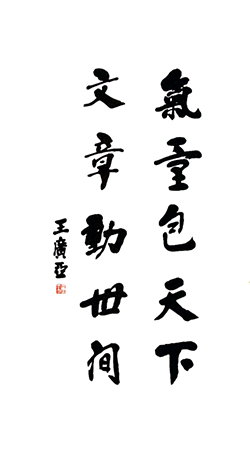 氣量包天下
文章動世間
王廣亞